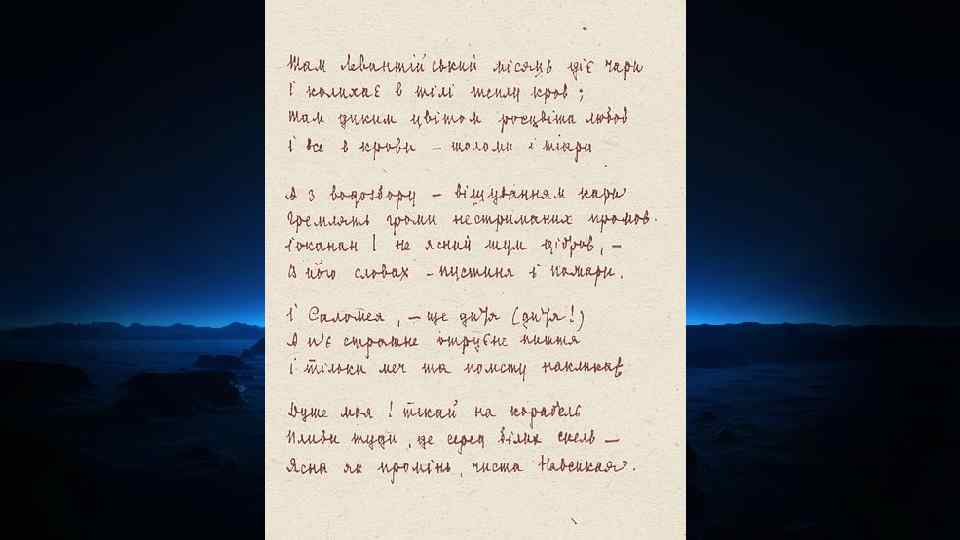 Там левантійський місяць діє чари
І колихає в тілі теплу кров;
Там диким цвітом росцвіта любов
І все в крови – шоломи і тіяри

А з водозбору – віщуванням кари
Гремлять громи нестриманих промов.
Іоканан! не ясний шум дібров, –
В його словах – пустиня і пожари.

І Саломея, – ще дитя (дитя!)
А п'є страшне отруєне пиття
І тільки меч та помсту накликає

Душе моя! тікай на корабель
Пливи туди, де серед білих скель –
Ясна як промінь, чиста Навсикая.